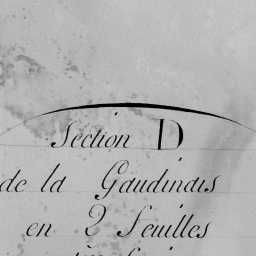 Section D
de la Gaudinais
en 2 feuilles